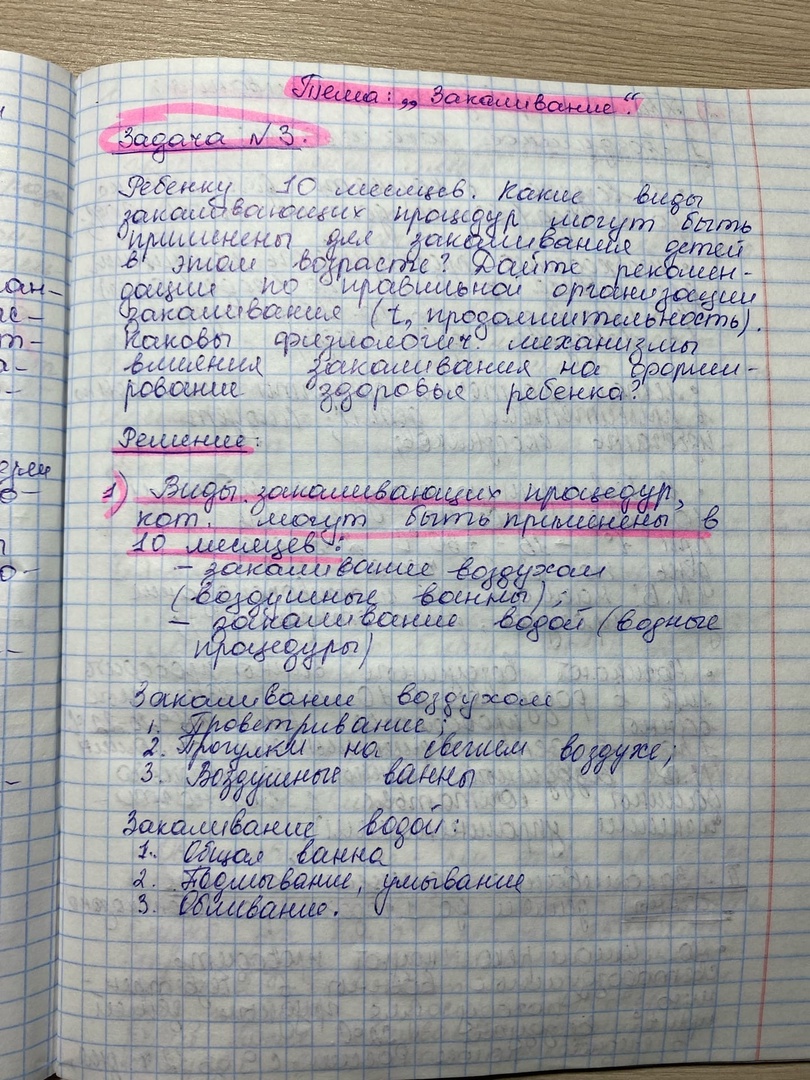 Тема: „Закаливание".
Задача №3.
Ребенку 10 месяцев. Какие виды
закаливающих процедур могут быть
применены для закаливания детей
в этом возрасте? Дайте рекомен-
дации по правильной организации
закаливания (t, продолжительность).
Каковы физиологич. механизмы
влияния закаливания на форми-
рование здоровья ребенка?
Решение:
1) Виды закаливающих процедур,
кот. могут быть применены в
10 месяцев:
– закаливание воздухом
(воздушные ванны);
– закаливание водой (водные
процедуры)
Закаливание воздухом
1. Проветривание;
2. Прогулки на свежем воздухе;
3. Воздушные ванны
Закаливание водой:
1. Общая ванна
2. Подмывание, умывание
3. Обливание.